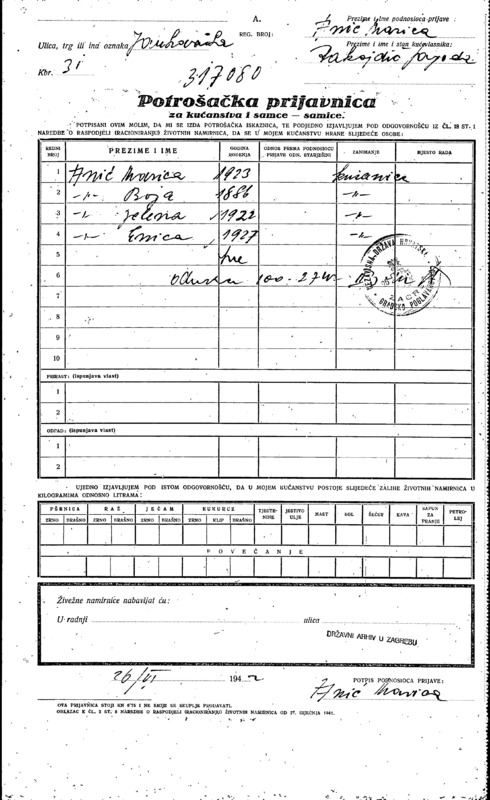 A.
Prezime i ime podnosioca prijave :
Anić Marica
Ulica, trg ili ina oznaka
REG. BROJ:
Prezime i ime i stan kućevlasnika:
Kbr. 31
317080
Potrošačka prijavnica
za kućanstva i samce — samice.
POTPISANI OVIM MOLIM, DA MI SE IZDA POTROŠAČKA ISKAZNICA, TE PODJEDNO IZJAVLJUJEM POD ODGOVORNOŠĆU IZ ČL. 18 ST. 1
NAREDBE O RASPODJELI (RACIONIRANJU) ŽIVOTNIH NAMIRNICA, DA SE U MOJEM KUĆANSTVU HRANE SLIJEDEĆE OSOBE:
REDNI BROJ PREZIME I IME GODINA ROĐENJA ODNOS PREMA PODNOSIOCU PRIJAVE ODN. STARJEŠINI ZANIMANJE MJESTO RADA
1 Anić Marica 1923
2 -"- Boja 1886 -"-
3 -"- Jelena 1922 -"-
4 -"- Emica 1927 -"-
5
6
7
8
9
10
NEZAVISNA DRŽAVA HRVATSKA
GRADSKO POGLAVARSTVO
ZAGREB
PRIRAST: (ispunjava vlast)
1
2
OTPAD: (ispunjava vlast)
1
2
UJEDNO IZJAVLJUJEM POD ISTOM ODGOVORNOŠĆU, DA U MOJEM KUĆANSTVU POSTOJE SLIJEDEĆE ZALIHE ŽIVOTNIH NAMIRNICA U
KILOGRAMIMA ODNOSNO LITRAMA:
PŠENICA RAŽ JEČAM KUKURUZ TJESTENINE JESTIVO ULJE MAST SOL ŠEĆER KAVA SAPUN ZA PRANJE PETROLEJ
ZRNO BRAŠNO ZRNO BRAŠNO ZRNO BRAŠNO ZRNO KLIP BRAŠNO
POVEĆANJE
Živežne namirnice nabavljat ću:
U radnji ulica
DRŽAVNI ARHIV U ZAGREBU
26/VI 1942
POTPIS PODNOSIOCA PRIJAVE:
Anić Marica
OVA PRIJAVNICA STOJI KN 0'75 I NE SMIJE SE SKUPLJE PRODAVATI.
OBRAZAC K ČL. 3 ST. 2 NAREDBE O RASPODJELI (RACIONIRANJU) ŽIVOTNIH NAMIRNICA OD 27. SIJEČNJA 1941.